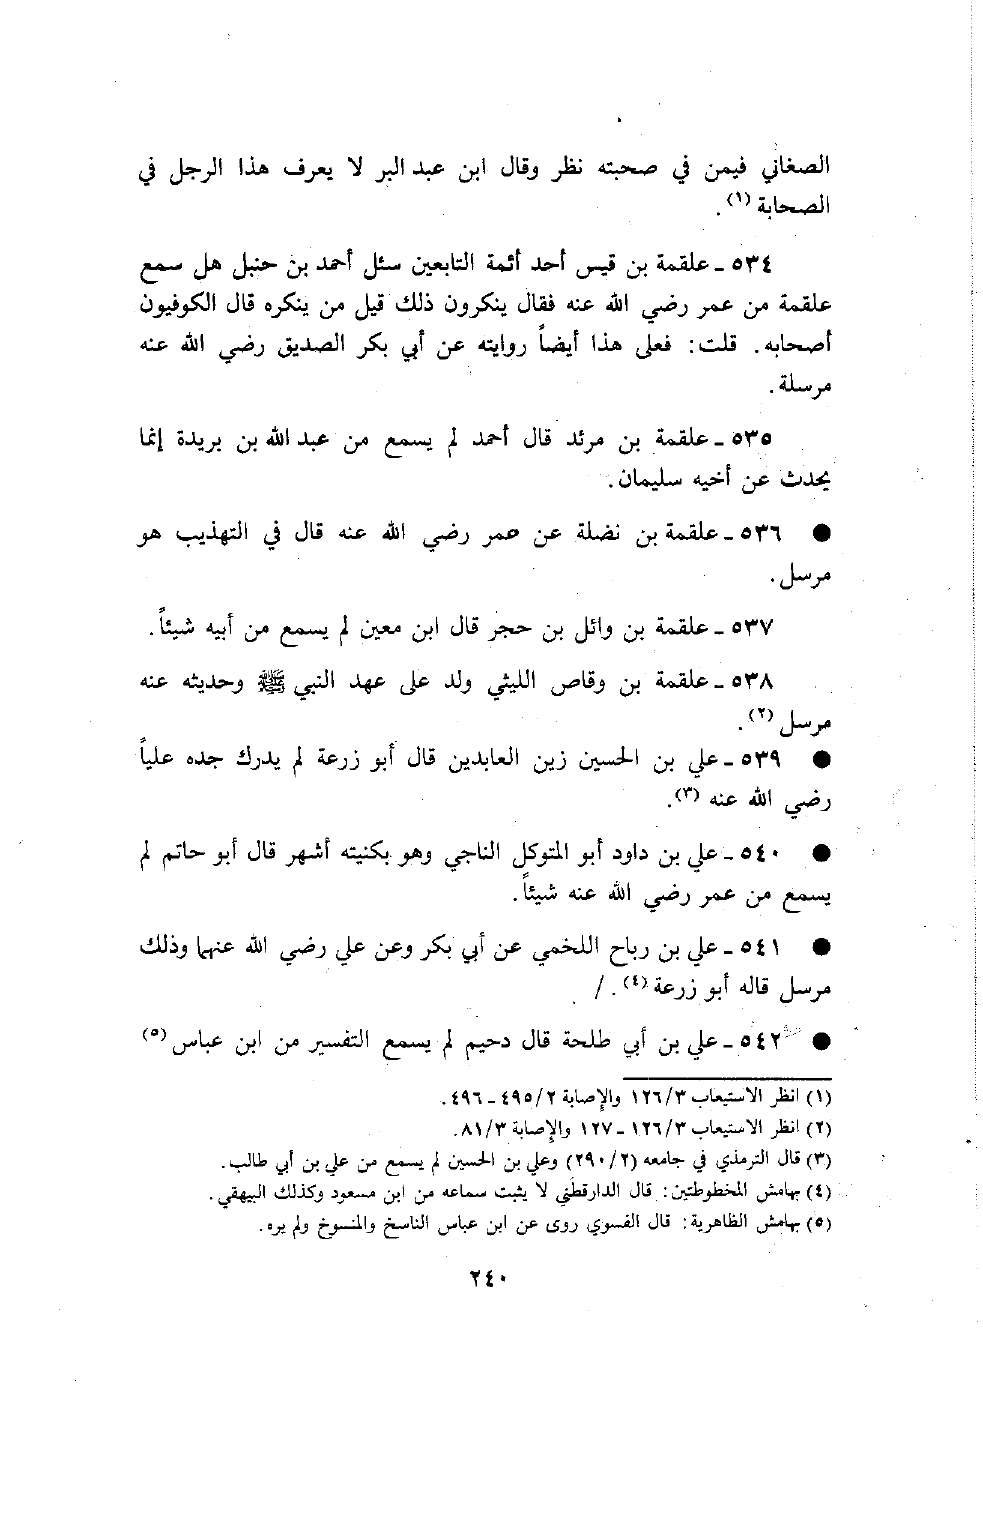 الصغاني فيمن في صحبته نظر وقال ابن عبد البر لا يعرف هذا الرجل في
الصحابة (١).
٥٣٤ ـ علقمة بن قيس أحد أئمة التابعين سئل أحمد بن حنبل هل سمع
علقمة من عمر رضي الله عنه فقال ينكرون ذلك قيل من ينكره قال الكوفيون
أصحابه. قلت: فعلى هذا أيضاً روايته عن أبي بكر الصديق رضي الله عنه
مرسلة.
٥٣٥ ـ علقمة بن مرئد قال أحمد لم يسمع من عبد الله بن بريدة إنما
يحدث عن أخيه سليمان.
● ٥٣٦ ـ علقمة بن نضلة عن عمر رضي الله عنه قال في التهذيب هو
مرسل.
٥٣٧ ـ علقمة بن وائل بن حجر قال ابن معين لم يسمع من أبيه شيئاً.
٥٣٨ ـ علقمة بن وقاص الليثي ولد على عهد النبي ﷺ وحديثه عنه
مرسل (٢).
● ٥٣٩ ـ علي بن الحسين زين العابدين قال أبو زرعة لم يدرك جده علياً
رضي الله عنه (٣).
● ٥٤٠ ـ علي بن داود أبو المتوكل الناجي وهو بكنيته أشهر قال أبو حاتم لم
يسمع من عمر رضي الله عنه شيئاً.
● ٥٤١ ـ علي بن رباح اللخمي عن أبي بكر وعن علي رضي الله عنهما وذلك
مرسل قاله أبو زرعة (٤). /
● ٥٤٢ ـ علي بن أبي طلحة قال دحيم لم يسمع التفسير من ابن عباس (٥)
(١) انظر الاستيعاب ١٢٦/٣ والإصابة ٤٩٥/٢ ـ ٤٩٦.
(٢) انظر الاستيعاب ١٢٦/٣ ـ ١٢٧ والإصابة ٨١/٣.
(٣) قال الترمذي في جامعه (٢٩٠/٢) وعلي بن الحسين لم يسمع من علي بن أبي طالب.
(٤) بهامش المخطوطتين: قال الدارقطني لا يثبت سماعه من ابن مسعود وكذلك البيهقي.
(٥) بهامش الظاهرية: قال الفسوي روى عن ابن عباس الناسخ والمنسوخ ولم يره.
٢٤٠